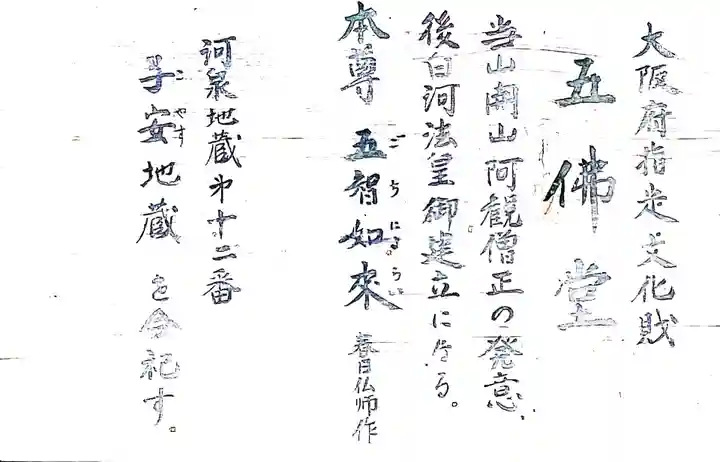 大阪府指定文化財
五佛堂
当山開山阿観僧正の発意、
後白河法皇御建立になる。
本尊 五智知来 春日仏師作
ごちにょらい
河泉地蔵第十二番
子安地蔵を合祀す。
こやす